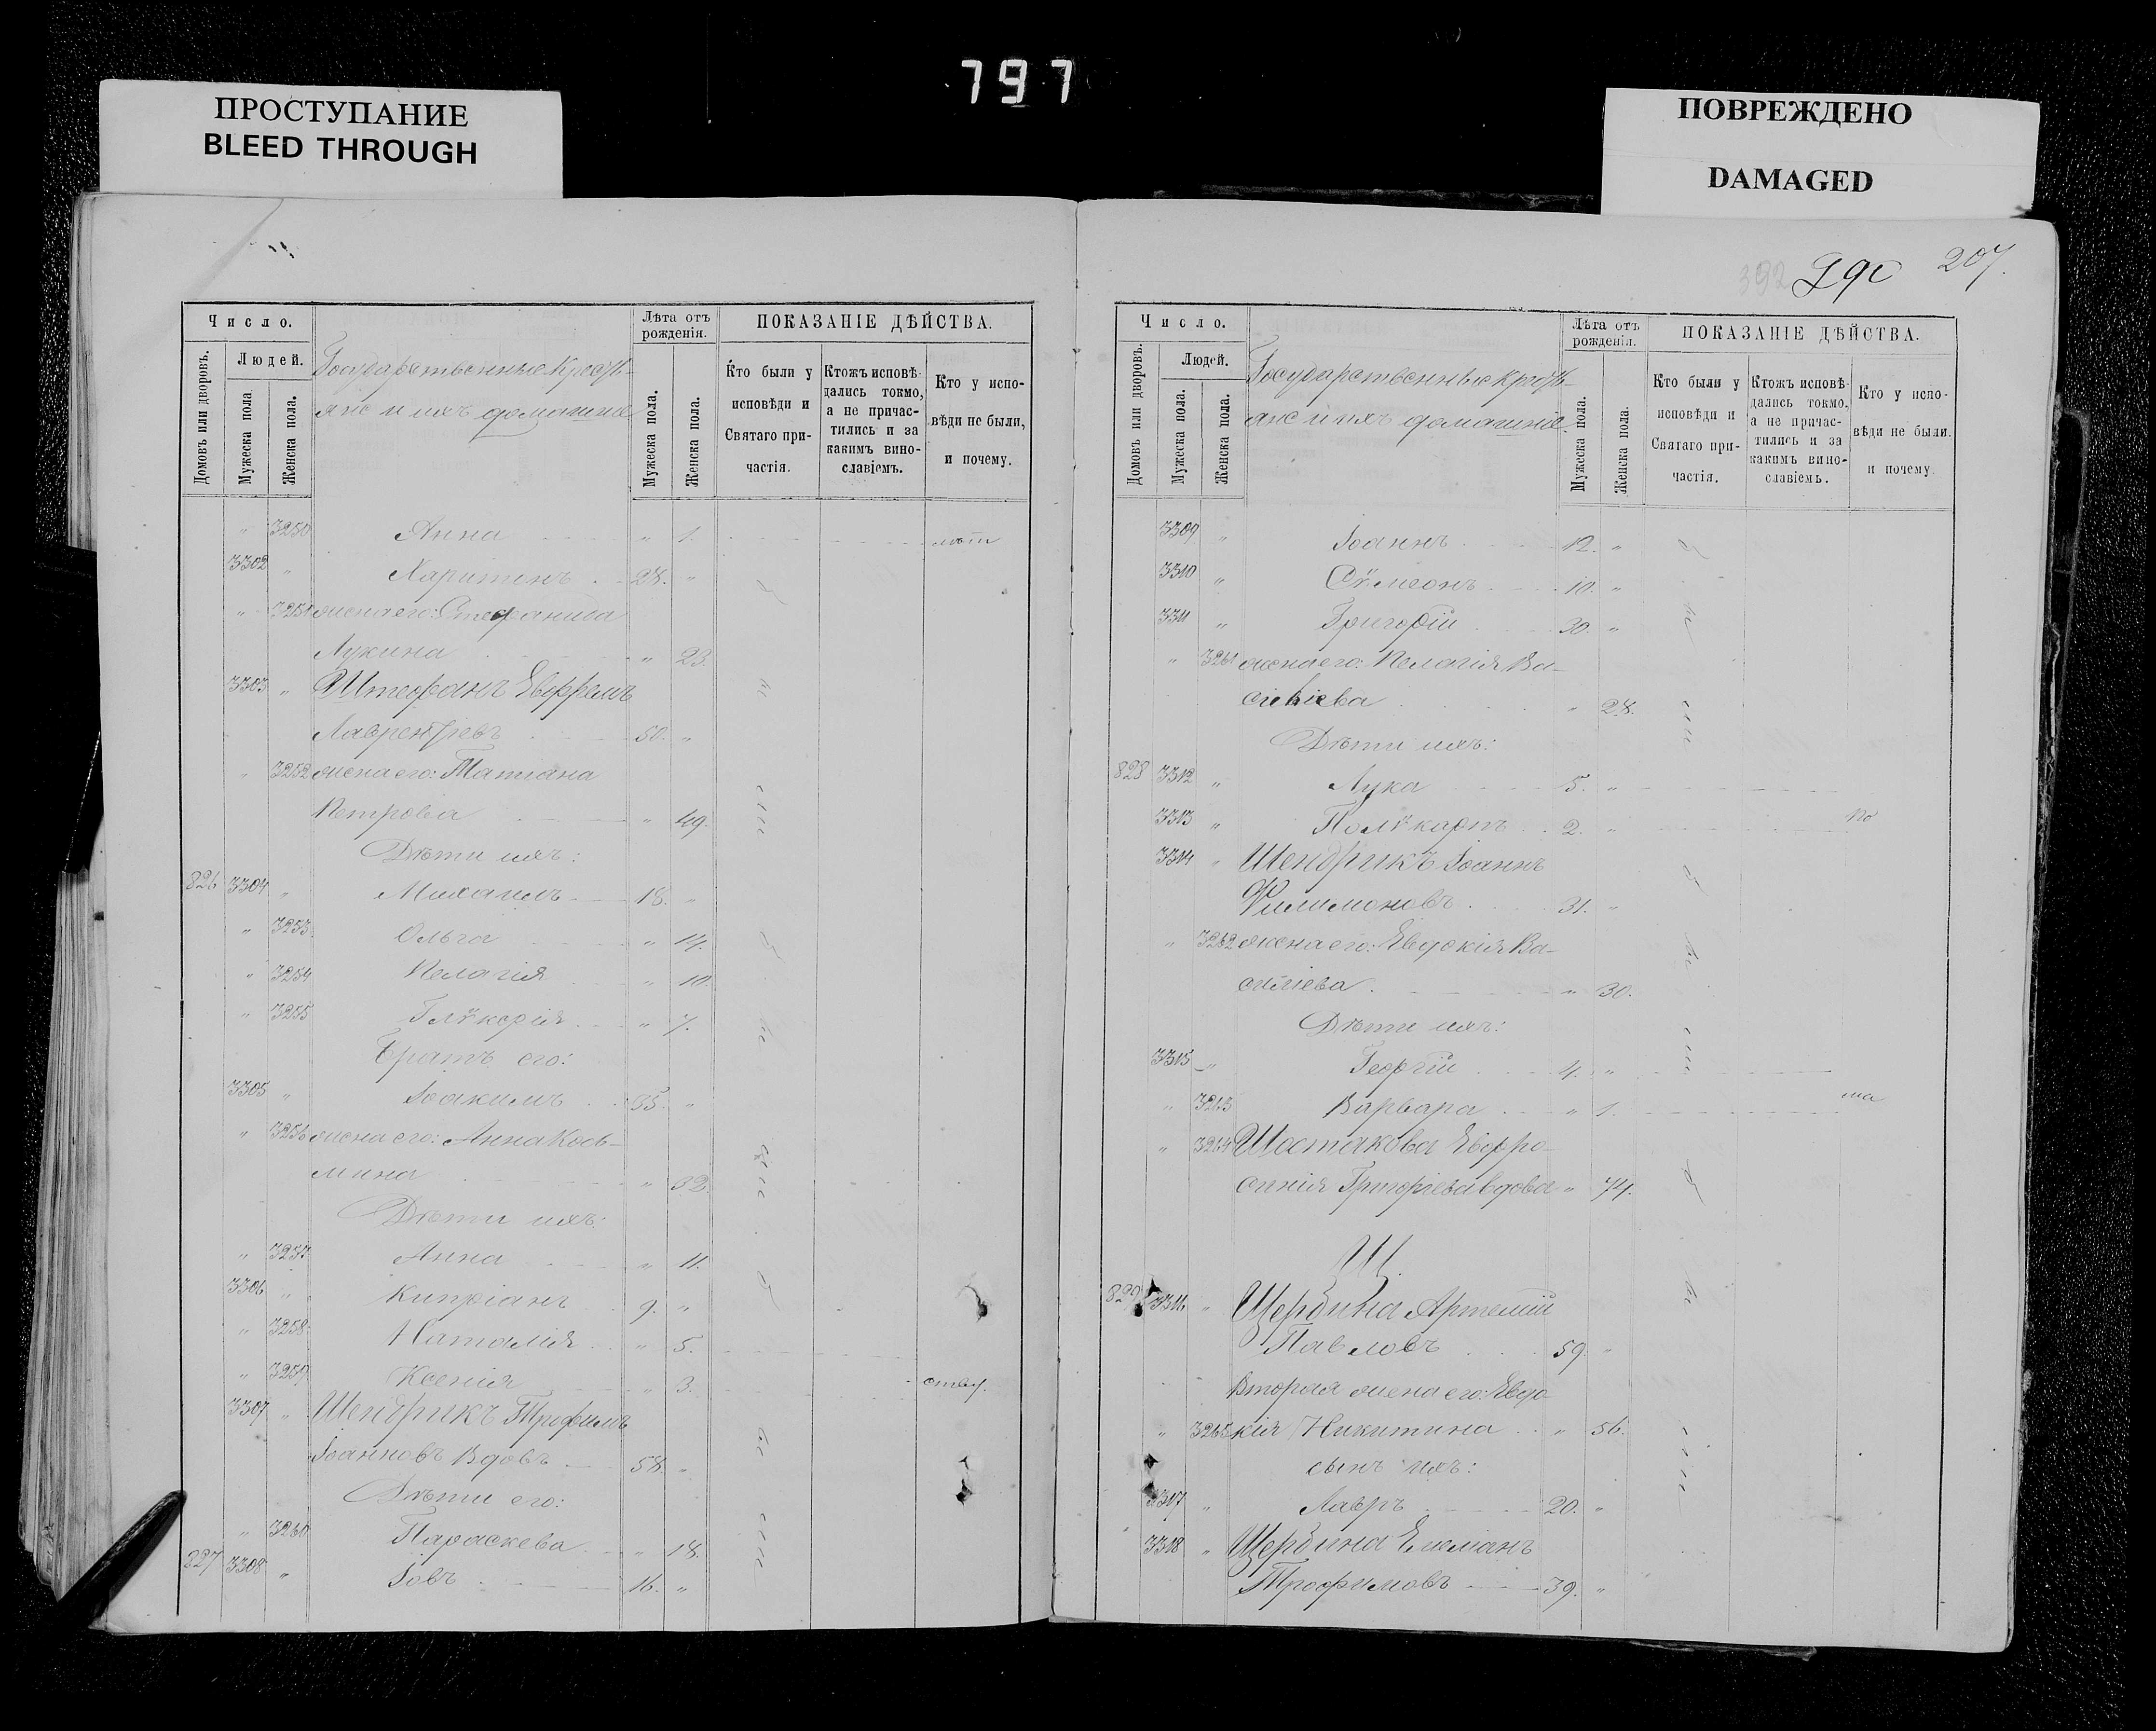 797
ПРОСТУПАНИЕ
BLEED THROUGH
ПОВРЕЖДЕНО
DAMAGED
Число.
Домовъ или дворовъ.
Людей.
Мужеска пола.
Женска пола.
Государственные Кресть-
яне и ихъ домашніе
Лѣта отъ рожденія.
Мужеска пола.
Женска пола.
ПОКАЗАНІЕ ДѢЙСТВА.
Кто были у исповѣди и Святаго причастія.
Ктожъ исповѣдались токмо, а не причастились и за какимъ винославіемъ.
Кто у исповѣди не были, и почему.
" 3250 Анна " 1.
3302 " Харитонъ 28. "
" 3251 жена его: Стефанида
Лукина " 23.
3303 " Штефанъ Евфремъ
Лаврентіевъ 50. "
" 3252 жена его: Татіана
Петрова " 49.
Дѣти ихъ:
826 3304 " Михаилъ 18. "
" 3253 Ольга " 14.
" 3254 Пелагія " 10.
" 3255 Глѵкерія " 7.
Братъ его:
3305 " Іоакимъ 35. "
" 3256 жена его: Анна Кось-
мина " 32.
Дѣти ихъ:
" 3257 Анна " 11.
3306 " Кипріанъ 9. "
" 3258 Наталія " 5.
" 3259 Ксенія " 3.
3307 " Шендрикъ Трофимъ
Іоанновъ Вдовъ 58. "
Дѣти его:
" 3260 Параскева " 18.
827 3308 " Іовъ 16. "
392 207.
Число.
Домовъ или дворовъ.
Людей.
Мужеска пола.
Женска пола.
Государственные Кресть-
яне и ихъ домашніе
Лѣта отъ рожденія.
Мужеска пола.
Женска пола.
ПОКАЗАНІЕ ДѢЙСТВА.
Кто были у исповѣди и Святаго причастія.
Ктожъ исповѣдались токмо, а не причастились и за какимъ винославіемъ.
Кто у исповѣди не были, и почему.
3309 " Іоаннъ 12. "
3310 " Сѵмеонъ 10. "
3311 " Григорій 30. "
" 3261 жена его: Пелагія Ва-
силіева " 28.
Дѣти ихъ:
828 3312 " Лука 5. "
3313 " Полѵкарпъ 2. " по
3314 " Шендрикъ Іоаннъ
Филимоновъ 31. "
" 3262 жена его: Евдокія Ва-
силіева " 30.
Дѣти ихъ:
3315 " Георгій 4. "
" 3263 Варвара " 1.
" 3264 Шостакова Евфро-
синія Григоріева вдова " 74.
Щ.
829 3316 " Щербина Артемій
Павловъ 59. "
Вторая жена его: Евдо
" 3265 кія Никитина " 56.
сынъ ихъ:
3317 " Лавръ 20. "
3318 " Щербина Емеліанъ
Трофимовъ 39. "